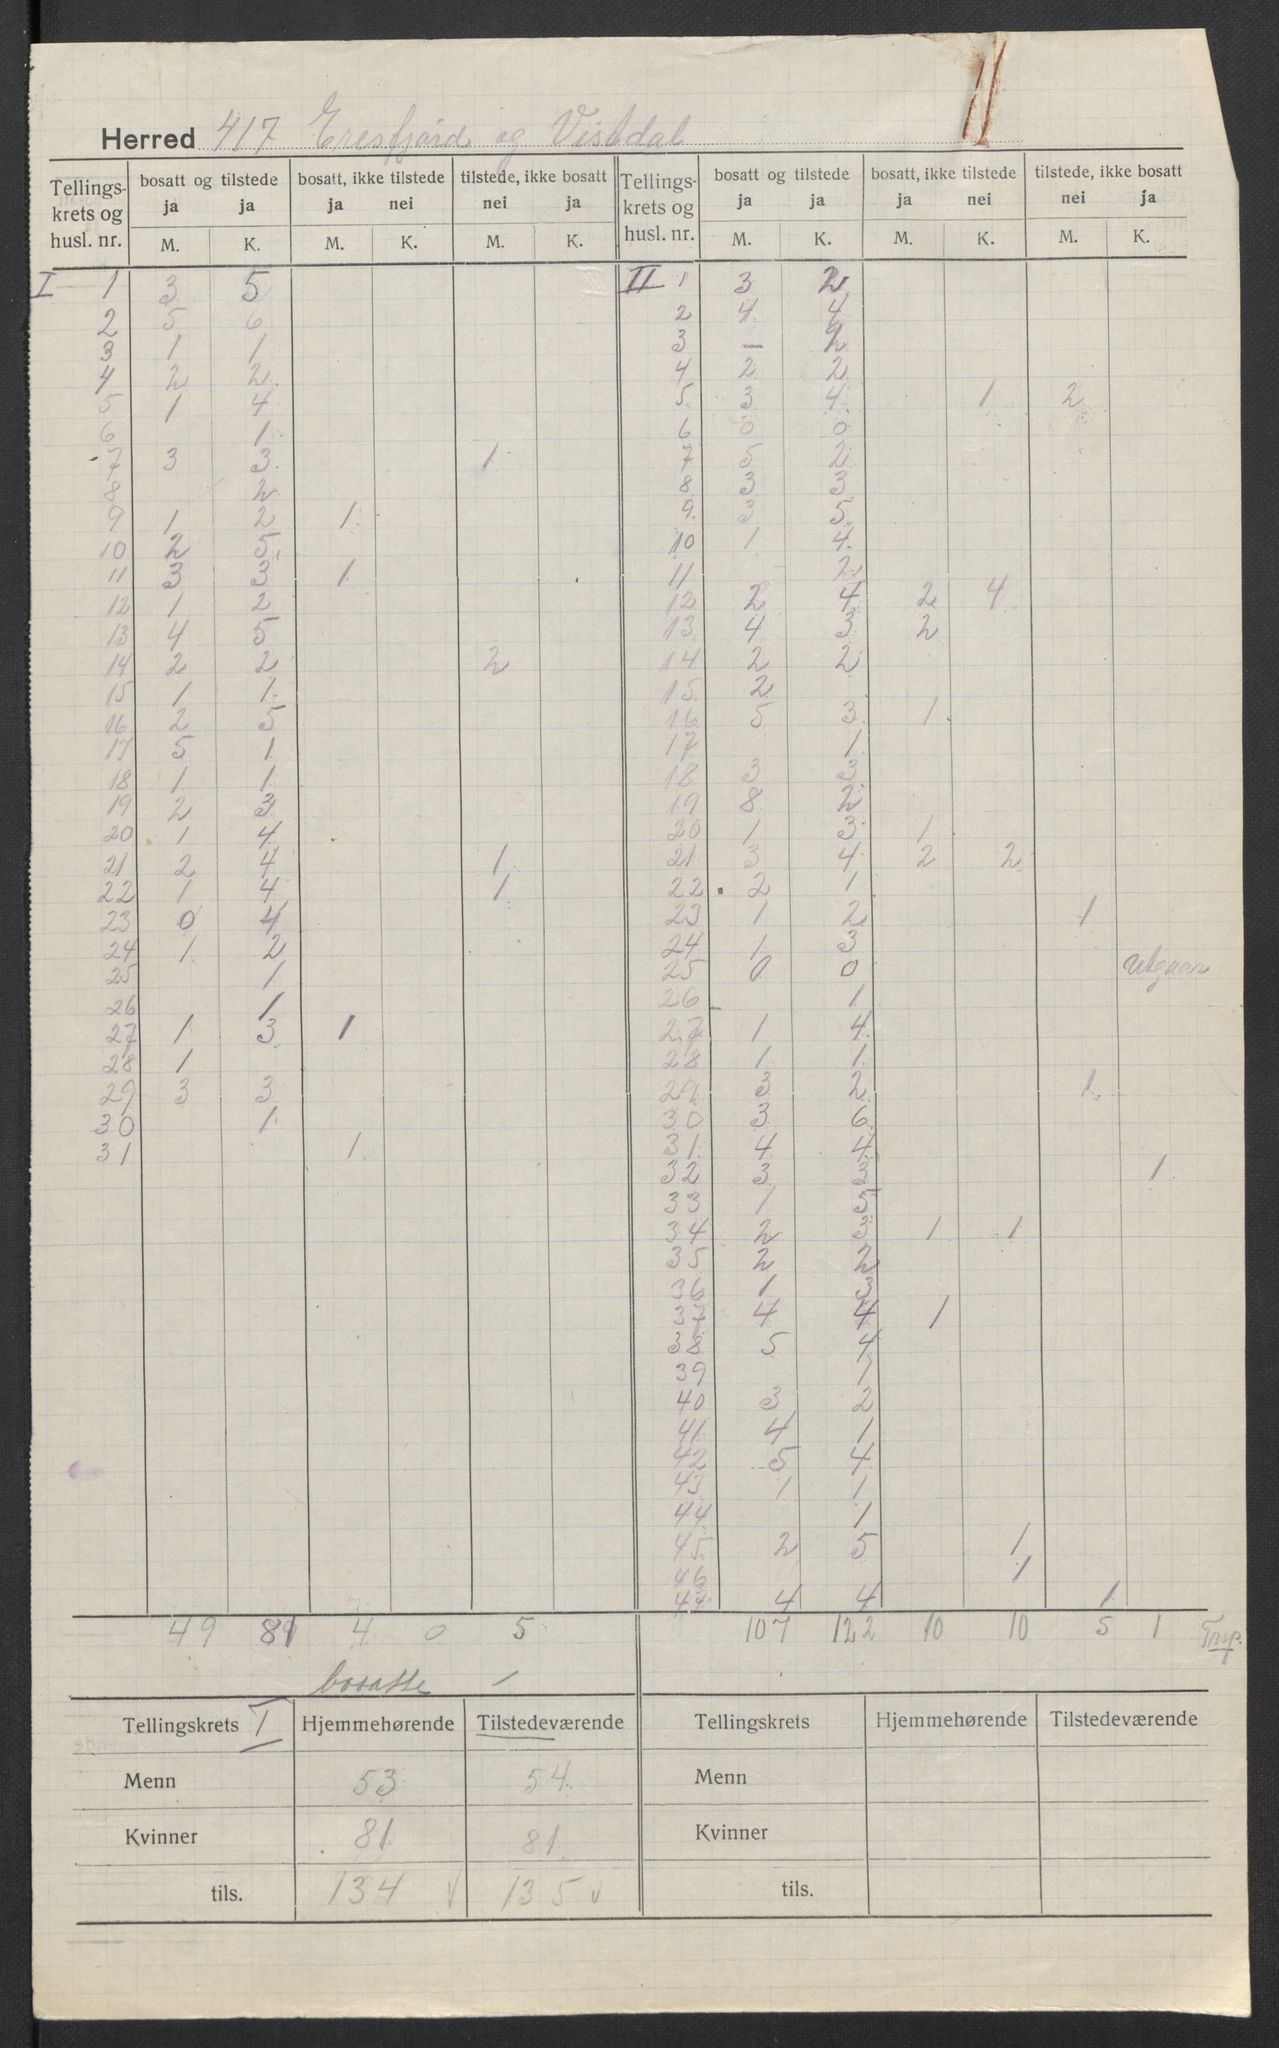 Herred 417 Eresfjord og Vistdal
Tellings-krets og husl. nr. | bosatt og tilstede ja M. | ja K. | bosatt, ikke tilstede ja M. | nei K. | tilstede, ikke bosatt nei M. | ja K. | Tellings-krets og husl. nr. | bosatt og tilstede ja M. | ja K. | bosatt, ikke tilstede ja M. | nei K. | tilstede, ikke bosatt nei M. | ja K.
I 1 | 3 | 5 | | | | | II 1 | 3 | 2 | | | |
2 | 5 | 6 | | | | | 2 | 4 | 4 | | | |
3 | 1 | 1 | | | | | 3 | – | 2 | | | |
4 | 2 | 2 | | | | | 4 | 2 | 2 | | | |
5 | 1 | 4 | | | | | 5 | 3 | 4 | | 1 | 2 |
6 | | 1 | | | | | 6 | 0 | 0 | | | |
7 | 3 | 3 | | | 1 | | 7 | 5 | 2 | | | |
8 | | 2 | | | | | 8 | 3 | 3 | | | |
9 | 1 | 2 | 1 | | | | 9 | 3 | 5 | | | |
10 | 2 | 5 | | | | | 10 | 1 | 4 | | | |
11 | 3 | 3 | 1 | | | | 11 | | 2 | | | |
12 | 1 | 2 | | | | | 12 | 2 | 4 | 2 | 4 | |
13 | 4 | 5 | | | | | 13 | 4 | 3 | 2 | | |
14 | 2 | 2 | | | 2 | | 14 | 2 | 2 | | | |
15 | 1 | 1 | | | | | 15 | 2 | | | | |
16 | 2 | 5 | | | | | 16 | 5 | 3 | 1 | | |
17 | 5 | 1 | | | | | 17 | | 1 | | | |
18 | 1 | 1 | | | | | 18 | 3 | 3 | | | |
19 | 2 | 3 | | | | | 19 | 8 | 2 | | | |
20 | 1 | 4 | | | | | 20 | 1 | 3 | 1 | | |
21 | 2 | 4 | | | 1 | | 21 | 3 | 4 | 2 | 2 | |
22 | 1 | 4 | | | 1 | | 22 | 2 | 1 | | | |
23 | 0 | 4 | | | | | 23 | 1 | 2 | | | 1 |
24 | 1 | 2 | | | | | 24 | 1 | 3 | | | |
25 | | 1 | | | | | 25 | 0 | 0 | | | | Utgaar
26 | | 1 | | | | | 26 | – | 1 | | | |
27 | 1 | 3 | 1 | | | | 27 | 1 | 4 | | | |
28 | 1 | | | | | | 28 | 1 | 1 | | | |
29 | 3 | 3 | | | | | 29 | 3 | 2 | | | 1 |
30 | | 1 | | | | | 30 | 3 | 6 | | | |
31 | | | 1 | | | | 31 | 4 | 4 | | | |
32 | 3 | 3 | | | | 1
33 | 1 | 5 | | | |
34 | 2 | 3 | 1 | 1 | |
35 | 2 | 2 | | | |
36 | 1 | 3 | | | |
37 | 4 | 4 | 1 | | |
38 | 5 | 4 | | | |
39 | | 1 | | | |
40 | 3 | 2 | | | |
41 | 4 | 1 | | | |
42 | 5 | 4 | | | |
43 | 1 | 1 | | | |
44 | | 1 | | | |
45 | 2 | 5 | | 1 | |
46 | | | | 1 | |
47 | 4 | 4 | | | 1 |
49 | 81 | 4 | 0 | 5 | | | 107 | 122 | 10 | 10 | 5 | 1 Trsp.
bosatte
Tellingskrets I | Hjemmehørende | Tilstedeværende | Tellingskrets | Hjemmehørende | Tilstedeværende
Menn | 53 | 54 | Menn
Kvinner | 81 | 81 | Kvinner
tils. | 134 | 135 | tils.